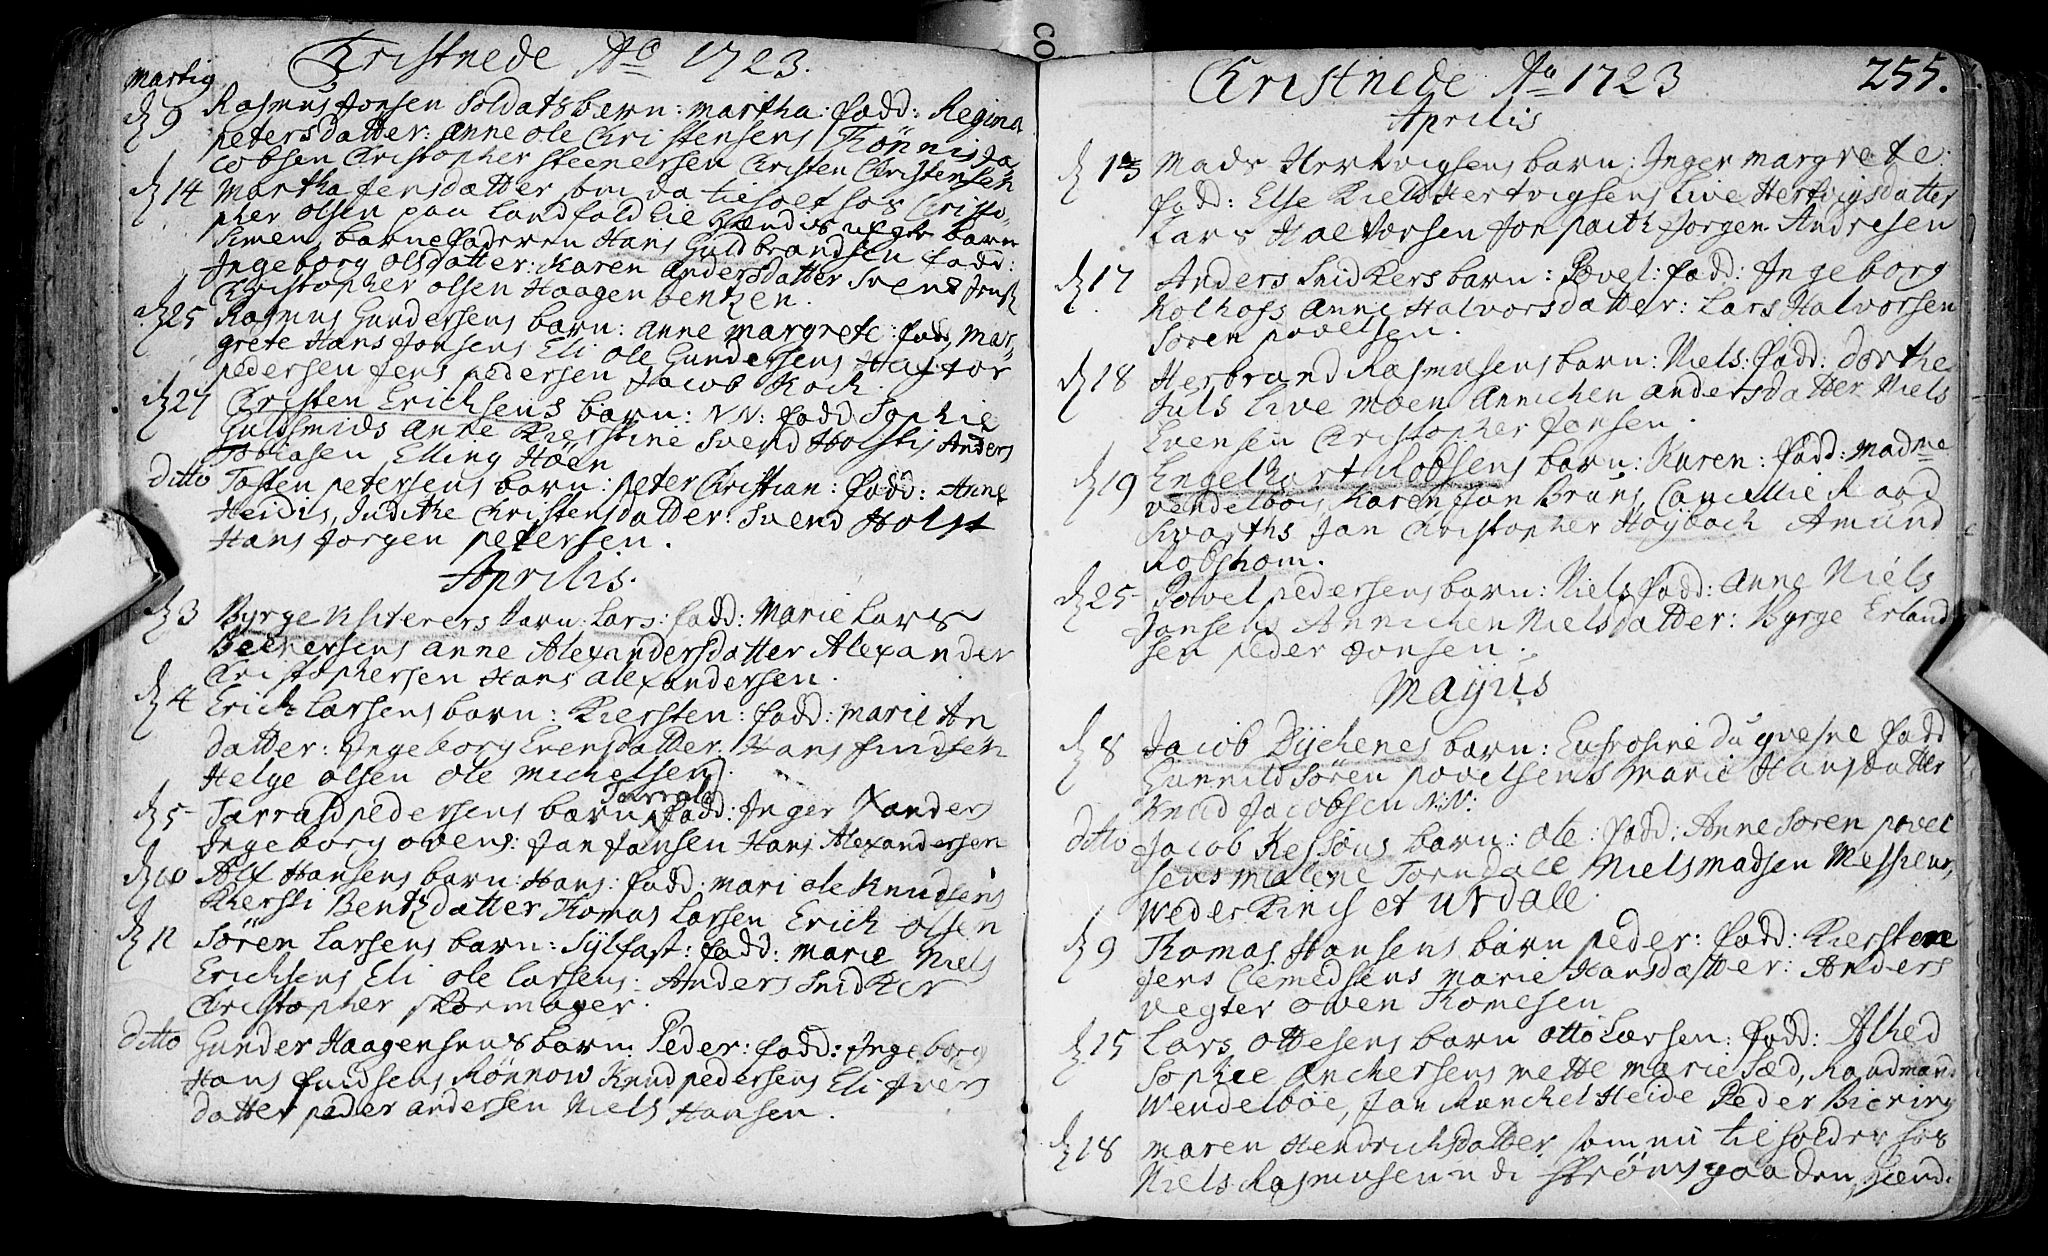 Kristnede Ao 1723.
Martij
D 9 Rasmus Jonsen Soldats barn: Martha: fadd: Regina
petersdatter: Anne ole Christensens Thönnis Ja
cobsen Christopher Steenersen Christen Christensen
D 14 Martha Jensdatter som da tilholt hos Christo
pher olsen paa Landfald lil
Simen, barnefaderen Hans Guldbrandsen fadd:
Ingeborg olsdatter: Karen Andersdatter Svend
Christopher olsen Haagen bentzen.
D 25 Rasmus Gundersens barn: Anne Margrete: fadd, Mar-
grete Hans Jonsens Eli ole Gundersens Haftor
pedersen Jens pedersen Jacob Koch.
D 27 Christen Erichsens barn: NN: fadd: Sophie
Guldsmids Anne Kierstine Svend Holstis Anders
Tobiasen Elling Höen
ditto Tosten petersens barn: peter Christian: fadd: Anne
Heidis, Judithe Christensdatter: Svend Holst
Hans Jørgen petersen.
Aprilis.
D 3 Byrge Visiterers barn: Lars: fadd: Marie Lars
Anne Alexandersdatter Alexander
Christophersen Hans Alexandersen.
D 4 Erich Larsens barn: Kiersten: fadd: Marie An
datter: Ingeborg Evensdatter. Hans
Helge olsen ole Michelsen.
Tarrald
D 5 Tarrald pedersens barn fadd: Inger Xanders
Ingeborg ovens: Jan Jansen Hans Alexandersen
D 10 Alf Hansens barn: Hans: fadd: Mari ole Knudsens
Khersti Bentzdatter Thomas Larsen Erich olsen
D 11 Sören Larsens barn: Sylfast: fadd: Marie Niels
Erichsens Eli ole Larsens: Anders Snidker
Christopher skoemager.
ditto Gunder Haagensens barn: Peder: fadd: Ingeborg
Hans Rönnow Knud pedersens Eli Ivers
datter peder andersen Niels Hansen.
255.
Christnede Ao 1723
Aprilis
D 13 Mads Hertvigsens barn: Inger Margrete:
fadd: Else Kield Hertvigsens Live Hertvigsdatter
Lars Halvorsen Jon Jorgen Andresen
D 17 Anders Snidkers barn: Povel: fadd: Ingeborg
Kolhofs Anne Halvorsdatter: Lars Halvorsen
Sören povelsen.
D 18 Herbrand Rasmusens barn: Niels: fadd: Dorthe
Juls Live Moen Annichen andersdatter Niels
Evensen Christopher Jonsen.
D 19 Engelhart Robsens barn: Karen: fadd: Madme
vendelbois Karen Jan Bruns, Raad
Svarths Jan Christopher Höybach Amund
Robsham.
D 25 Povel pedersens barn: Niels, fadd: Anne Niels
Jansens Annichen Nielsdatter: Byrge Erland
sen peder Jonsen.
Mayus
D 8 Jacob barn: Eufrosine fadd
Gunnild Sören povelsens Marie Hansdatter
Knud Jacobsen NN:
ditto Jacob barn: ole: fadd: Anne Sören povel
sens Malene Torndall Niels Madsen Messieurs,
Wederkinch et Urdall.
D 9 Thomas Hansens barn peder: fadd: Kierstene
Jens Clemedsens Marie Hansdatter: Anders
vegter owen Thomesen
D 15 Lars ottesens barn otto Larsen: fadd: Alhed
Sophie Anchersens Mette Marie Sæd, Raadmand
Wendelboe, Jan Heide Peder Biering
D 18 Maren Hendrichsdatter som nu tilholder hos
Niels Rasmusen Strömsgaaden, hænd.